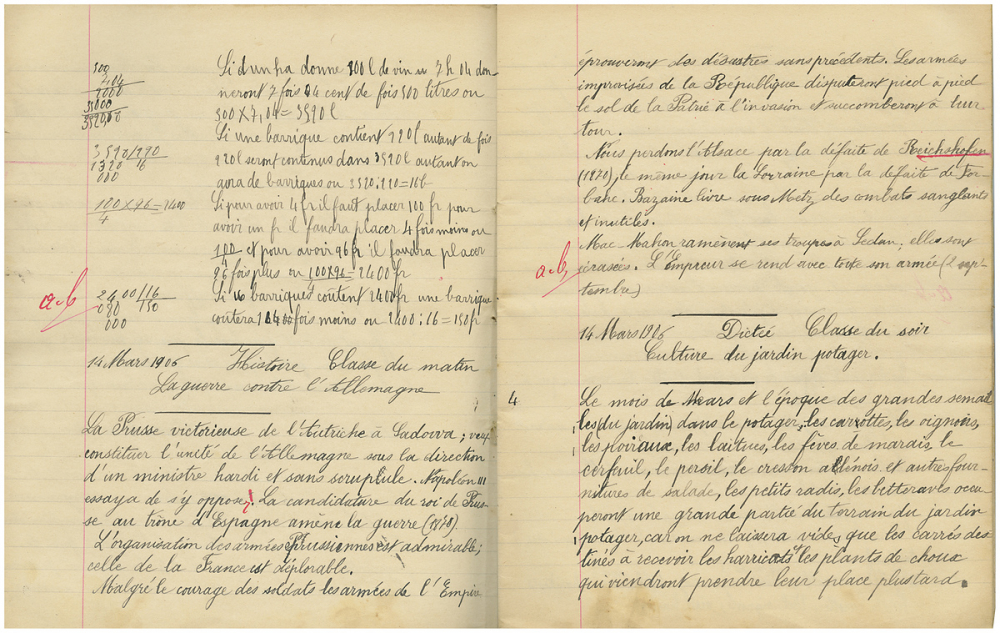 500
7,04
2000
35000
3520,00
Si d un ha donne 500 l de vin us 7 h 04 don-
neront 7 fois 04 cent de fois 500 litres ou
500 X 7,04 = 3520 l
Si une barrique contient 220 l autant de fois
220 l seront contenus dans 3520 l autant on
aura de barriques ou 3520:220=16b
3520/220
1320 16
000
Si pour avoir 4 fr il faut placer 100 fr pour
avoir un fr il faudra placer 4 fois moins ou
100 et pour avoir 96 fr il faudra placer
96 fois plus ou 100x96 = 2400 fr
100 X 96 = 2400
4
Si 16 barriques coutent 2400 fr une barrique
coutera 16 fois moins ou 2400:16=150 fr
2400/16
080 150
000
a-b
14 Mars 1906 Histoire Classe du matin
La guerre contre l'Allemagne
La Prusse victorieuse de l'Autriche à Sadowa; veut
constituer l'unité de l'Allemagne sous la direction
d'un ministre hardi et sans scrupule. Napoléon III
essaya de s'y oppose. La candidature du roi de Prus-
se au trône d'Espagne amène la guerre (1870).
L'organisation des armées Prussiennes est admirable;
celle de la France est déplorable.
Malgré le courage des soldats les armées de l'Empire
éprouveront des désastres sans précédents. Les armées
improvisées de la République disputeront pied à pied
le sol de la Patrie à l'invasion et succomberont à leur
tour.
Nous perdons l'Alsace par la défaite de Reichshofen
(1870), le même jour la Lorraine par la défaite de For-
bahc. Bazaine livre sous Metz des combats sanglants
et inutiles.
Mac Mahon ramènent ses troupes à Sedan; elles sont
écrasées. L'Empreur se rend avec toute son armée (2 sept-
tembre)
a-b
14 Mars 1906 Dictée Classe du soir
Culture du jardin potager.
4
Le mois de Mars et l'époque des grandes semail
les (du jardin) dans le potager, les carrottes, les oignons,
les poireaux, les laitues, les fèves de marais, le
cerfeuil, le persil, le cresson alinois et autres four-
nitures de salade, les petits radis, les betteraves occu-
peront une grande partie du terrain du jardin
potager, car on ne laissera vide, que les carrés des
tinés à recevoir les harricots et les plants de choux
qui viendront prendre leur place plus tard.